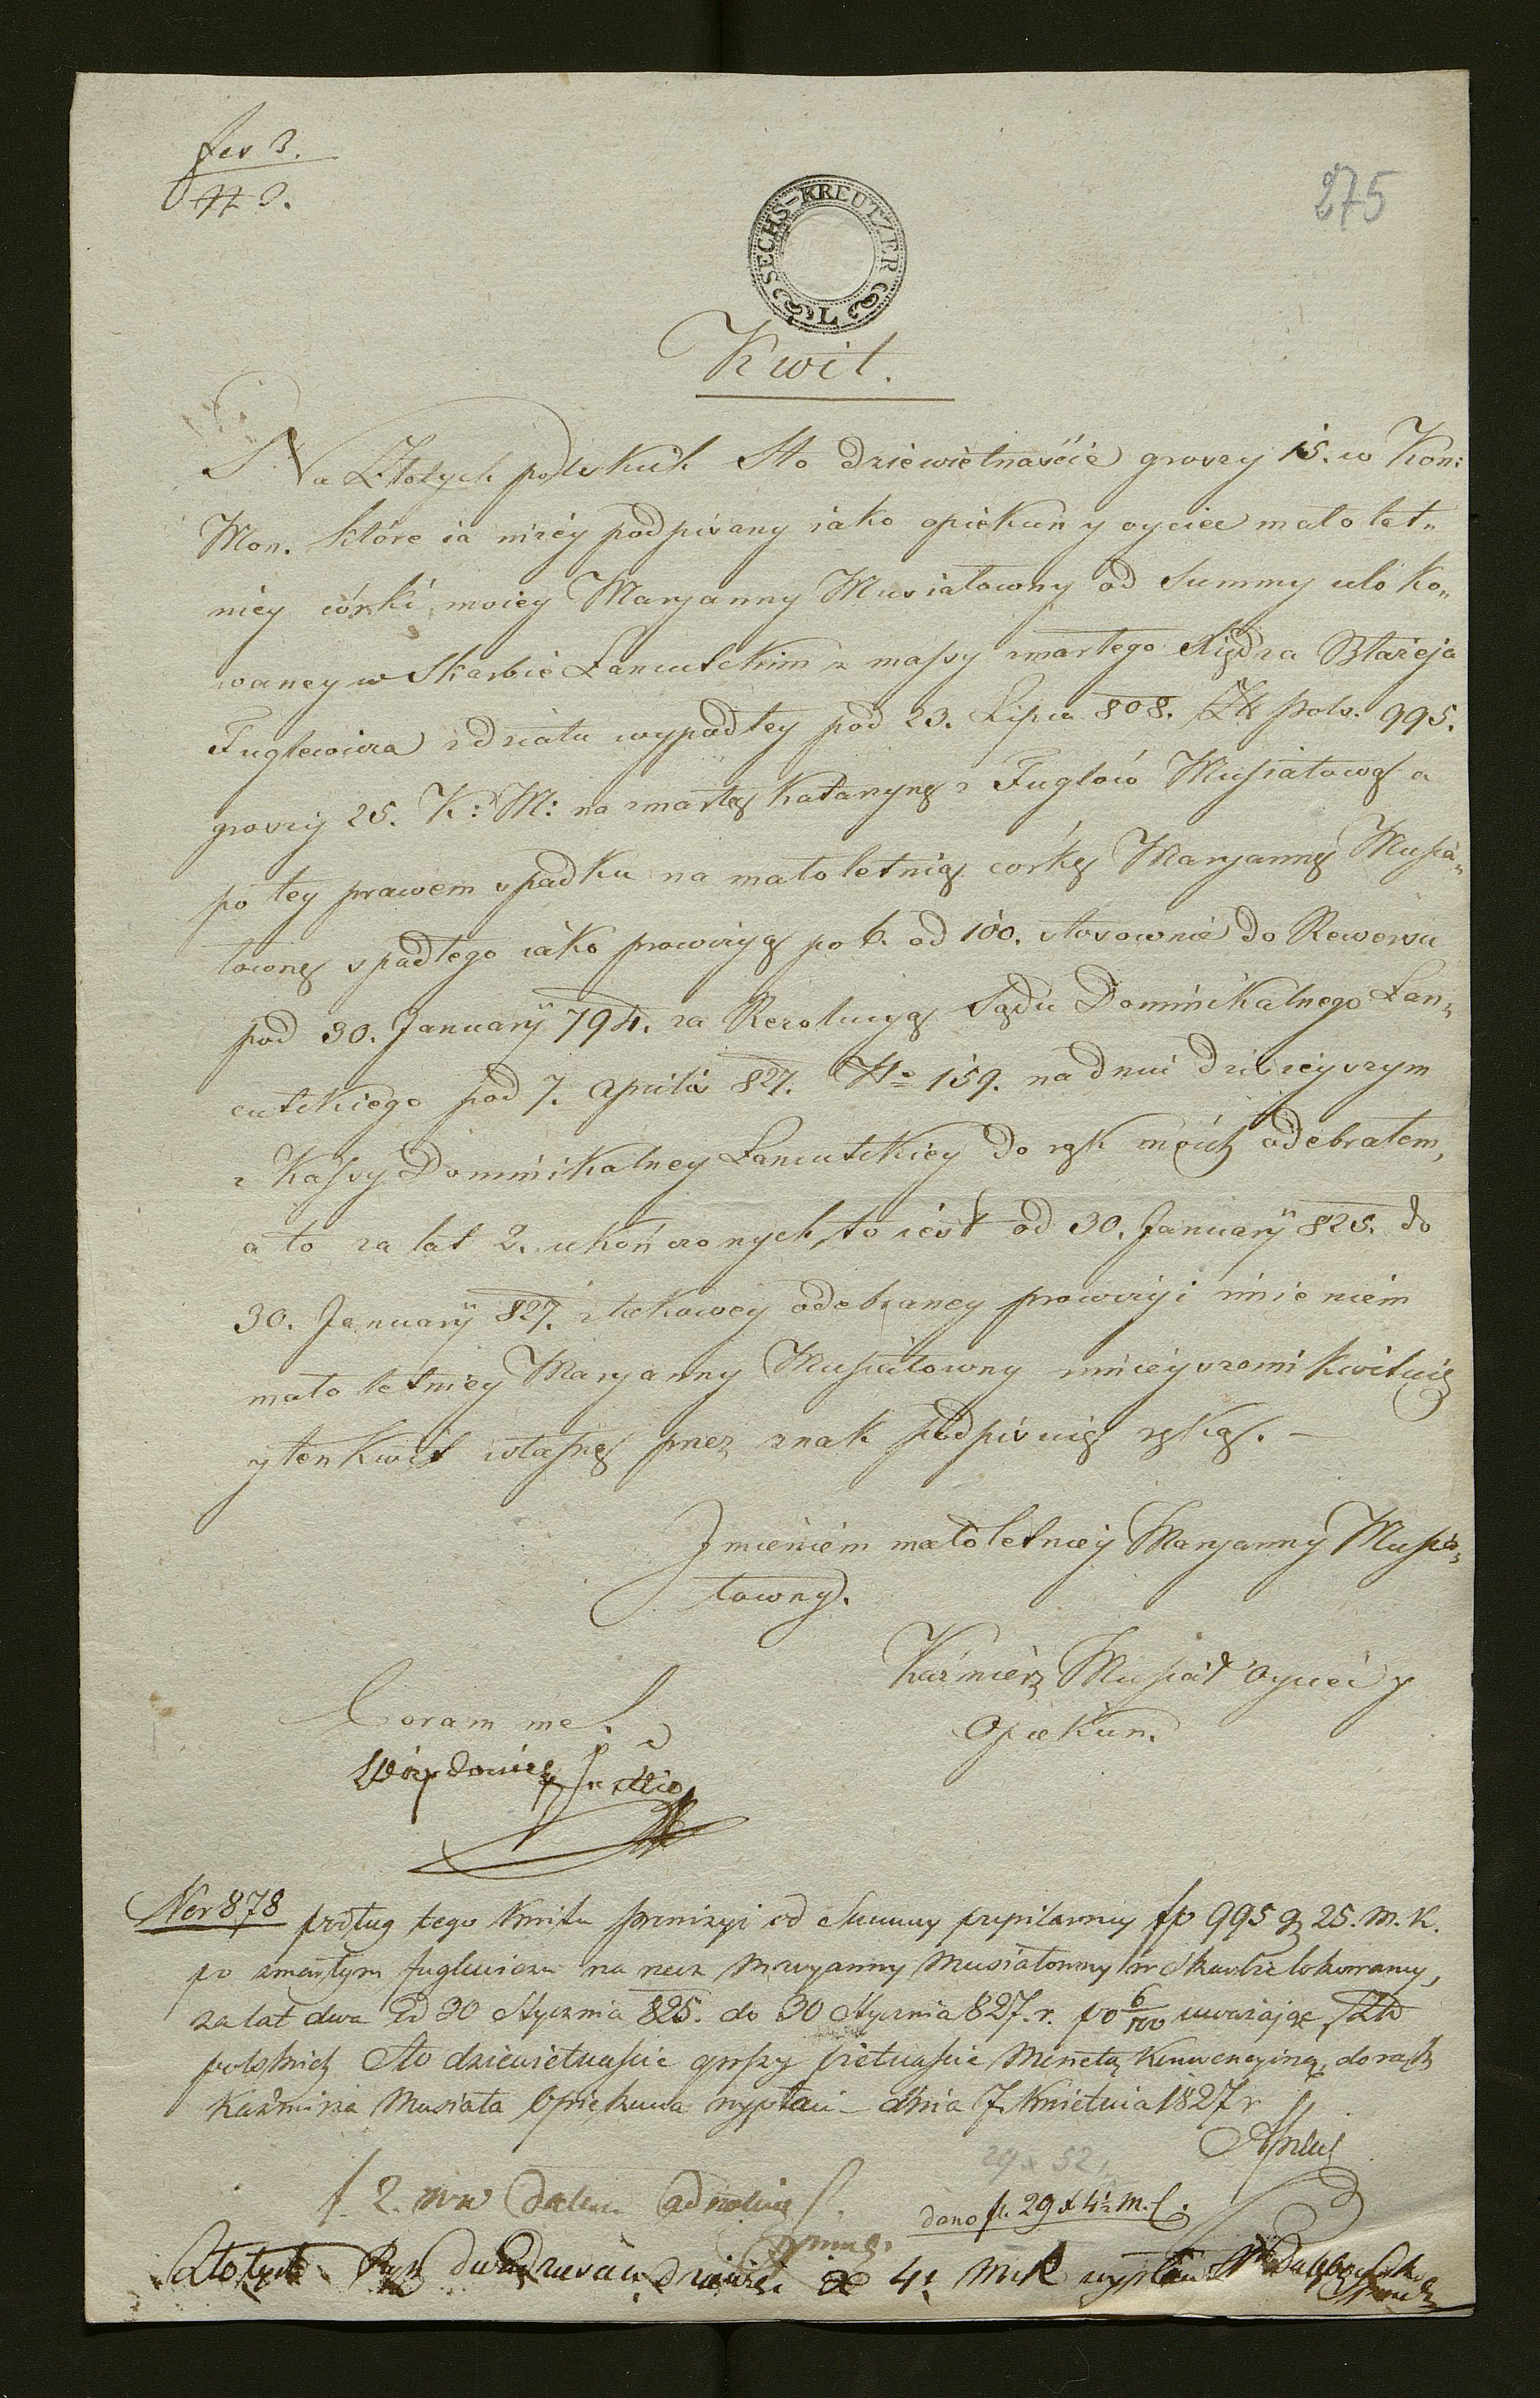 fes 3.
N 3.
275
SECHS-KREUTZER
L
Kwit.
Na Złotych polskich Sto dziewietnaście groszy 15. w Kon:
Mon. które ia niżéy podpisany iako opiekun y oyciec małolet„
niey córki moiey Maryanny Musiałowny od Summy uloko„
waney w Skarbie Łancutskim z massy zmarłego Xiędza Błażeja
Fuglewicza zdziału wypadłey pod 23. Lipca 808. Zł pols. 995.
groszy 25. K: M: na zmarłą Katarzynę z Fuglów Musiałową a
po tey prawem spadku na małoletnią corkę Maryannę Musia„
łownę spadłego iako prowizyą po 6. od 100. stosownie do Rewersu
pod 30. Januarÿ 794. za Rezolucyą Sądu Dominikalnego Łan„
cutskiego pod 7. Aprilis 827. No 159. na dniu dzisieyszym
z Kassy Dominikalney Łancutskiey do rąk moich odebrałem,
a to za lat 2. ukończonych, to iest od 30. Januarÿ 825. do
30. Januarÿ 827. z takowey odebraney prowizyi imieniem
małoletniey Maryanny Musiałowny ninieyszemi kwituię
y ten kwit własną przez znak podpisuię ręką. —
Jmieniem małoletniey Maryanny Musia„
łowny.
Kaźmierz Musiał Oyciec y
Opiekun.
Coram me
Ner 878 podług tego kwitu prowizyi od Summy pupilarney fp 995 g 25. M. K.
po zmarłym Fuglewiczu na rzecz Maryanny Musiałowny w Skarbie lokowaney,
za lat dwa od 30 Stycznia 825. do 30 Stycznia 827. r. po 6/100 uważając, Zło
polskich Sto dziewietnaście groszy pietnaście Monetą Konwencyiną, do rąk
Kaźmirza Musiała Opiekuna wypłaci – dnia 7 Kwietnia 1827 r
29 x 52
dano fl. 29 x 4½ M. C.
Złotych Ryń dwadzieścia dziewięć x 4½ M K wypłacił